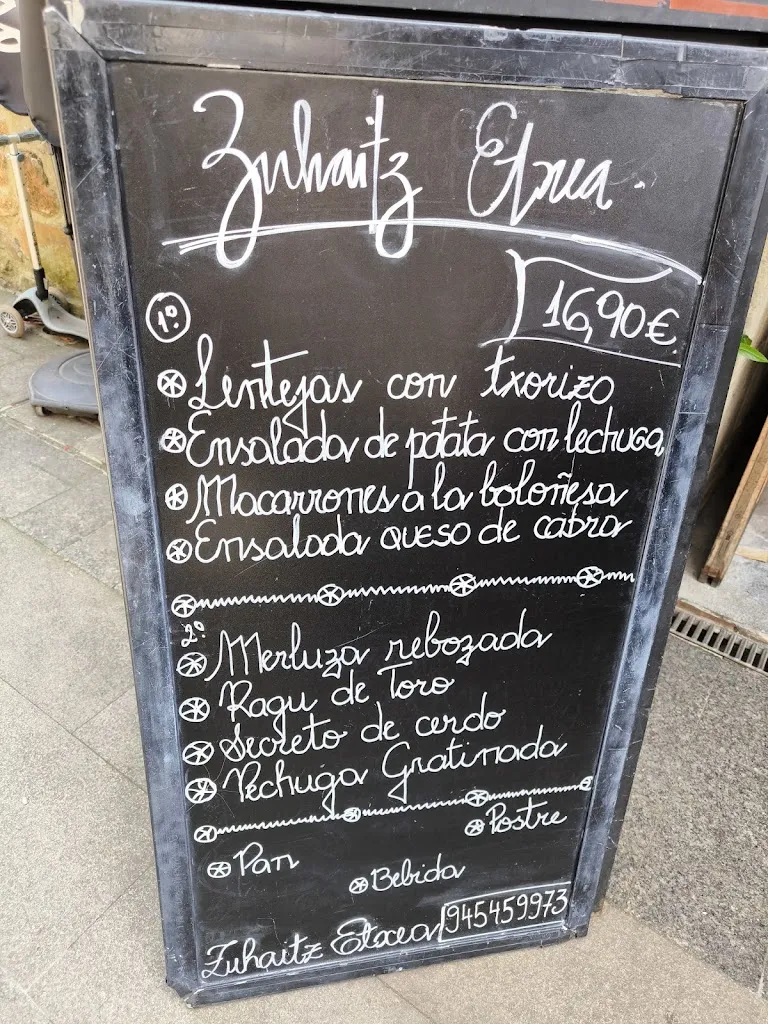 Zuhaitz Etxea.
16,90€
1º.
Lentejas con txorizo
Ensalada de patata con lechuga
Macarrones a la boloñesa
Ensalada queso de cabra
2º.
Merluza rebozada
Ragu de Toro
Secreto de cerdo
Pechuga Gratinada
Postre
Pan
Bebida
Zuhaitz Etxea 945459973